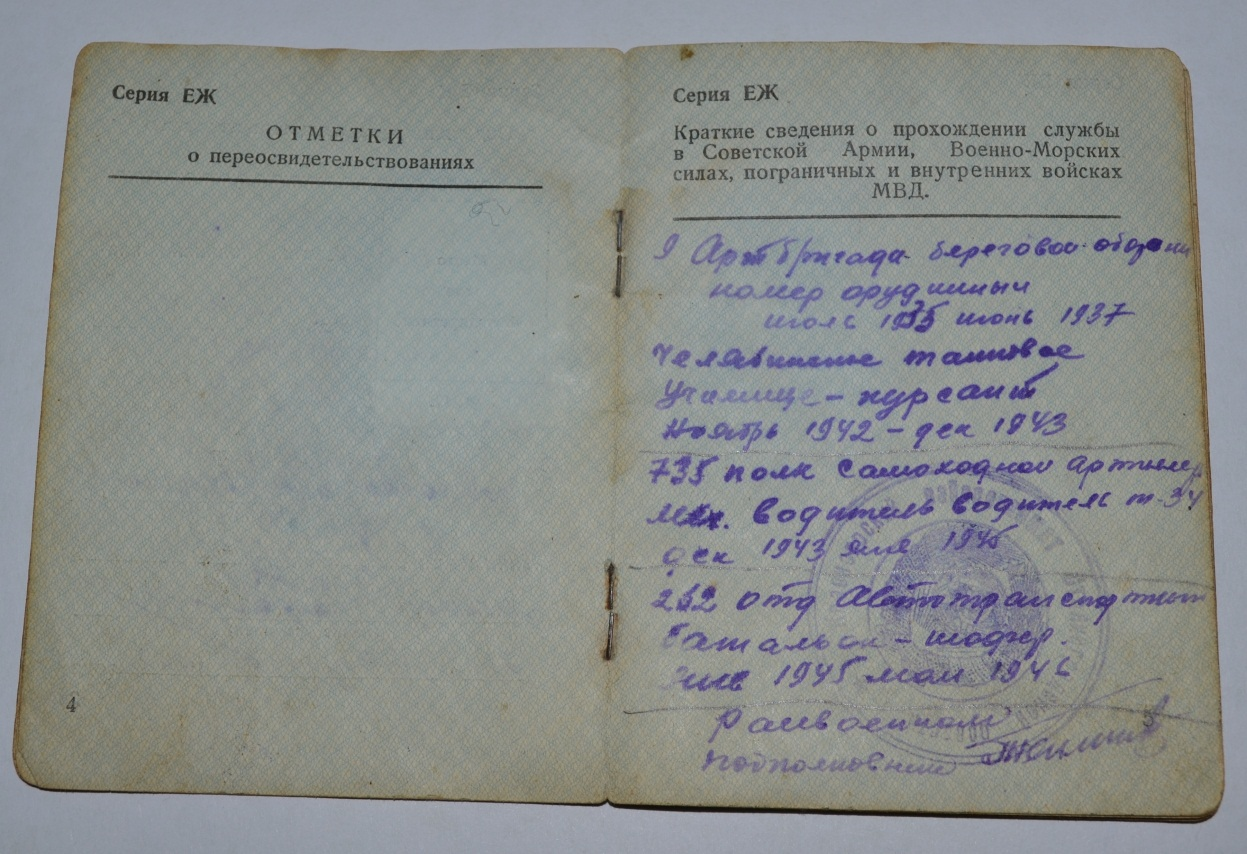 Серия ЕЖ
ОТМЕТКИ
о переосвидетельствованиях
4
Серия ЕЖ
Краткие сведения о прохождении службы
в Советской Армии, Военно-Морских
силах, пограничных и внутренних войсках
МВД.
Артбригада береговой обороны
номер орудийный
июль 1935 июнь 1937
Челябинское танковое
Училище - курсант
Ноябрь 1942 - дек 1943
735 полк самоходной артиллер
Мех. водитель водитель т-34
дек 1943 янв 1945
232 отд Автотранспортный
батальон - шофер.
янв 1945 май 1946
Райвоенком
подполковник